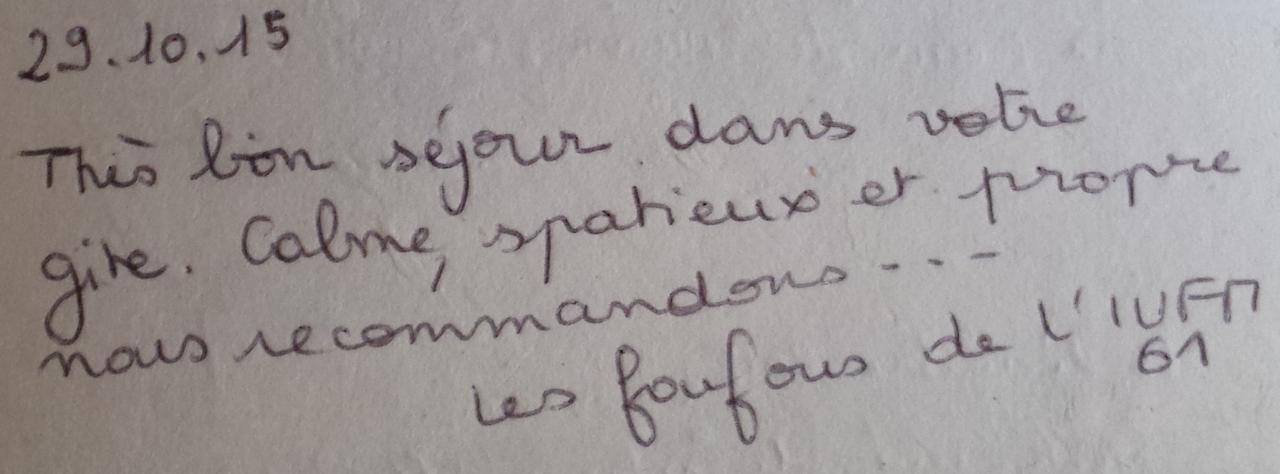 29.10.15
Très bon séjour dans votre
gite. Calme, spatieux et propre
nous recommandons ...
Les foufous de l'IUFM
61